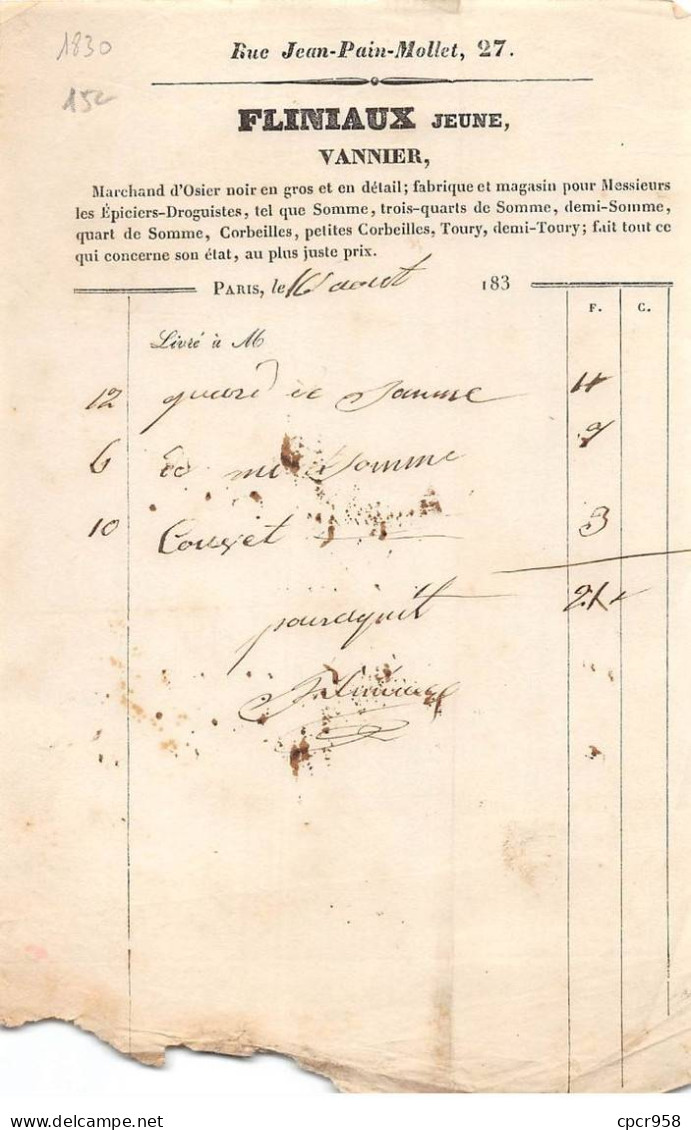 1830
15
Rue Jean-Pain-Mollet, 27.
FLINIAUX JEUNE,
VANNIER,
Marchand d'Osier noir en gros et en détail; fabrique et magasin pour Messieurs
les Épiciers-Droguistes, tel que Somme, trois-quarts de Somme, demi-Somme,
quart de Somme, Corbeilles, petites Corbeilles, Toury, demi-Toury; fait tout ce
qui concerne son état, au plus juste prix.
PARIS, le 16 aout 183
F. C.
Livré à M
12 de Somme
6 Somme 7
10 3
21
pouraquit
Fliniaux
cpcr958